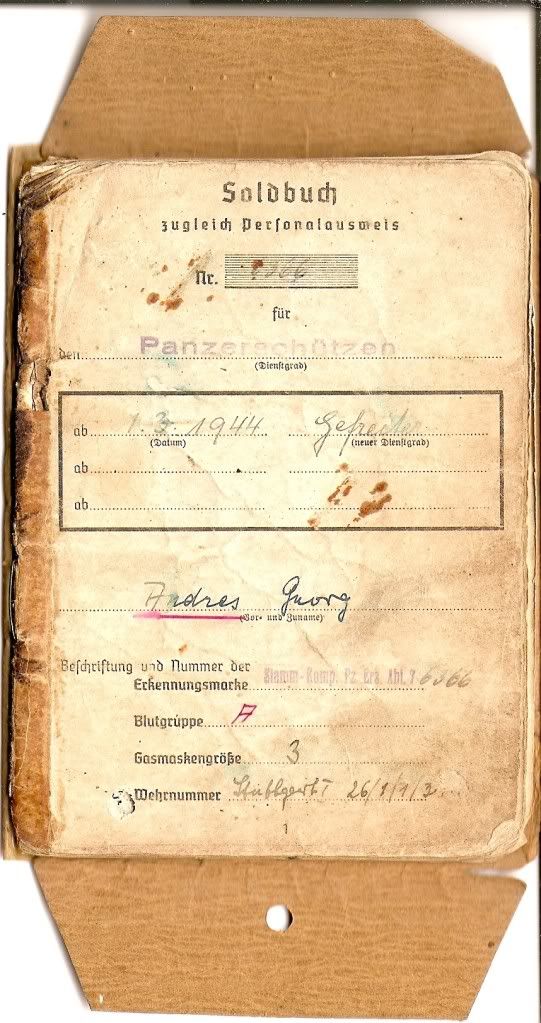 Soldbuch
zugleich Personalausweis
Nr. 6366
für
den Panzerschützen
(Dienstgrad)
ab 1.3.1944 Gefreiter
(Datum) (neuer Dienstgrad)
ab
ab
Andres Georg
(Vor- und Zuname)
Beschriftung und Nummer der
Erkennungsmarke Stamm-Komp. Pz. Ers. Abt. 7 6366
Blutgruppe A
Gasmaskengröße 3
Wehrnummer Stuttgart I 26/1/1/3
1